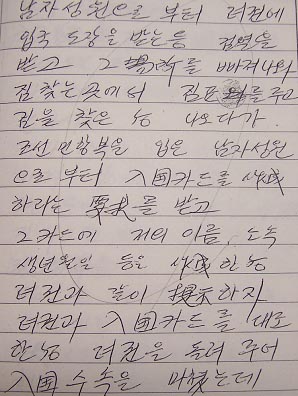 남자성원으로 부터 려권에
입국 도장을 받는등 검역을
받고 그 場所를 빠져나와
짐찾는곳에서 짐표를 주고
짐을 찾은 後 나오다가
조선 민항복을 입은 남자성원
으로 부터 入国카드를 作成
하라는 要求를 받고
그카드에 저의 이름, 소속
생년월일 등을 作成한 後
려권과 같이 提示하자
려권과 入国카드를 대조
한後 려권을 돌려 주어
入国 수속을 마쳤는데